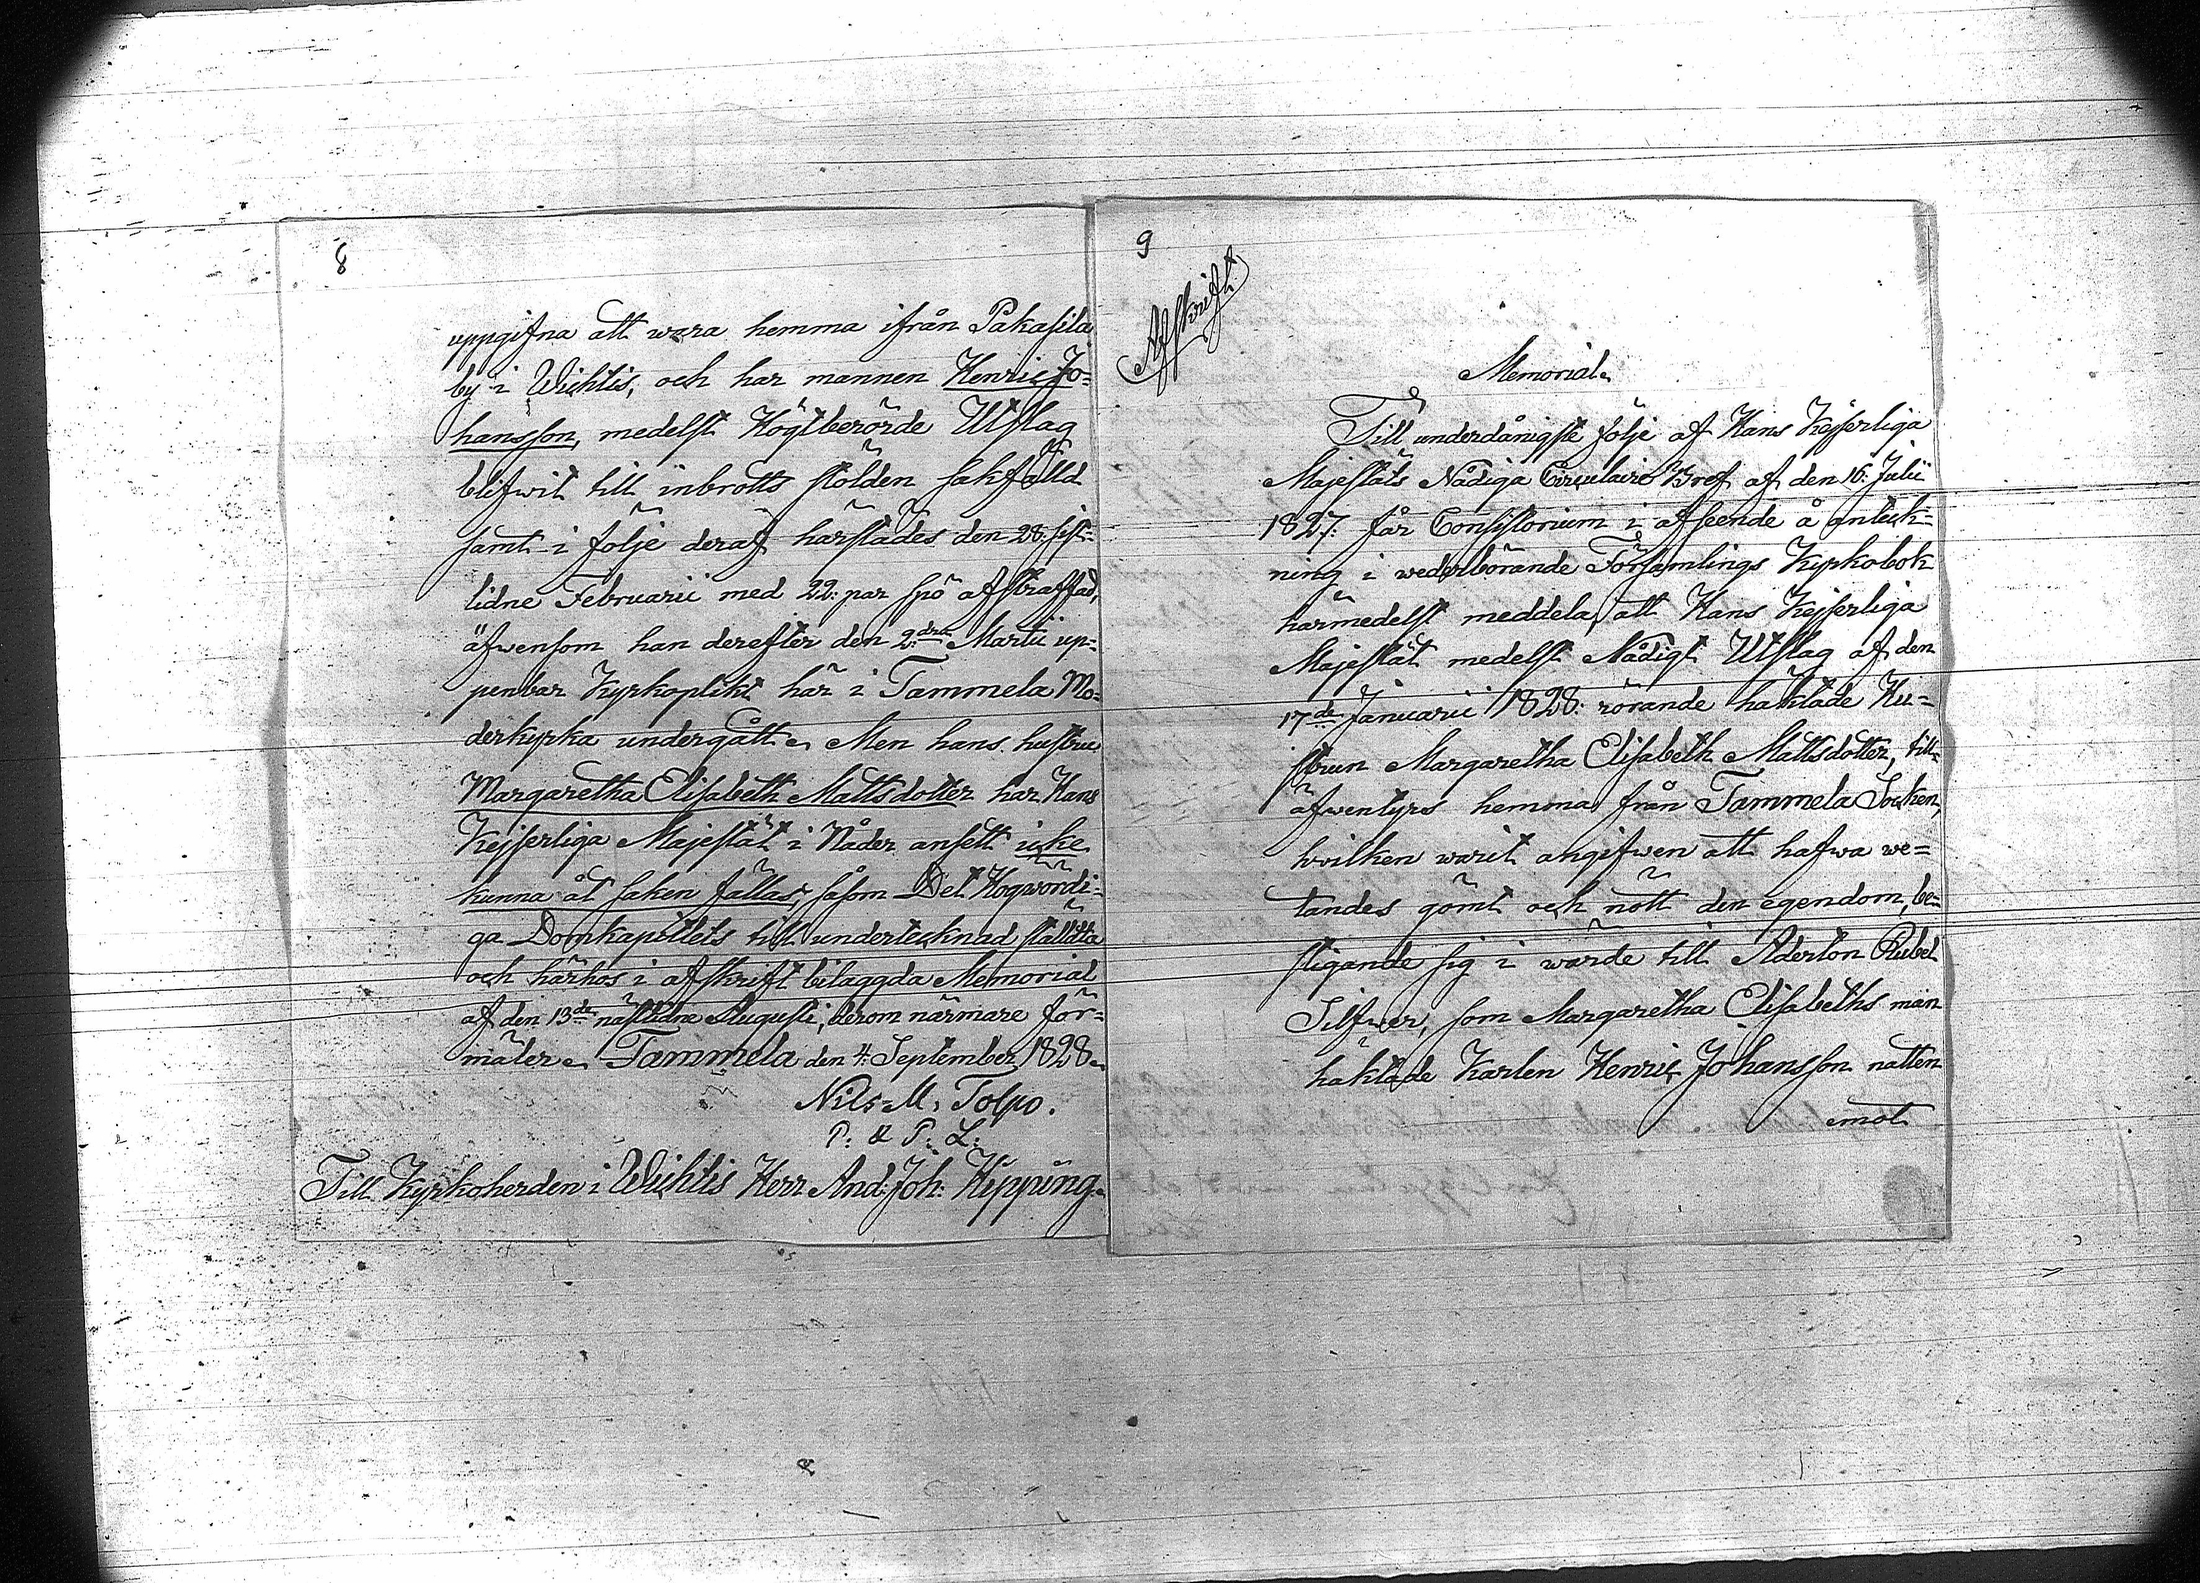 8
uppgifna att wara hemma ifrån Pakasila
by i Wichtis, och har mannen Henric Jo=
hansson, medelst Högstberörde Utslag
blifwit till inbrotts stölden sakfälld
samt i följe deraf härstädes den 28: sist=
lidne Februarii med 22: par spö afstraffad,
äfwensom han derefter den 2:dra Martii up=
penbar Kyrkoplikt här i Tammela Mo=
derkyrka undergått. Men hans hustru
Margaretha Elisabeth Mattsdotter har Hans
Kejserliga Majestät i Nåder ansett icke
kunna åt saken fällas, såsom Det Högwördi=
ga Domkapitlets till undertecknad ställdta
och härhos i afskrift bilaggda Memorial
af den 13de nästlidne Augusti, derom närmare för=
mäler. Tammela den 4: September 1828.
Nils M. Tolpo.
P: & P: L:
Till Kyrkoherden i Wichtis Herr And: Joh: Hipping.
9
Afskrift
Memorial.
Till underdånigste följe af Hans Kejserliga
Majestäts Nådiga Circulaire Bref af den 16: Julii
1827. får Consistorium i afseende å anteck=
ning i wederbörande Församlings Kyrkobok
härmedelst meddela, att Hans Kejserliga
Majestät medelst Nådigt Utslag af den
17de Januarii 1828: rörande häktade Hu=
strun Margaretha Elisabeth Mattsdotter, till=
äfwentyrs hemma från Tammela Socken,
hvilken warit angifwen att hafwa we=
tandes gömt och nött den egendom, be=
stigande sig i wärde till Aderton Rubel
Silfwer, som Margaretha Elisabeths man
häktade Karlen Henric Johansson natten
emot